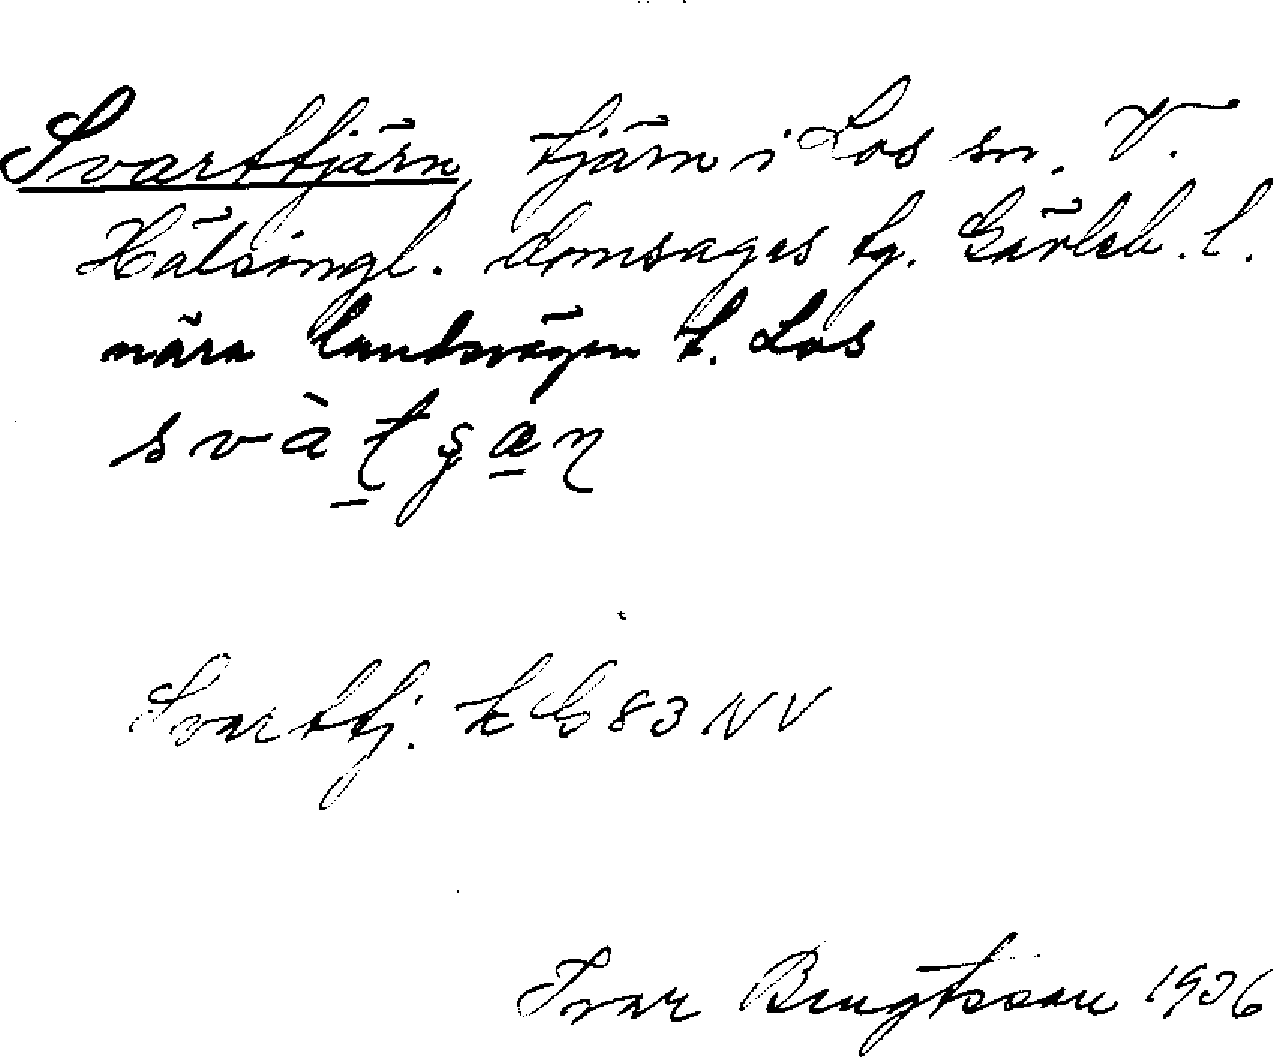 Svarttjärn, tjärn i Los sn. V.
Hälsingl. domsagas tg. Gävleb. l.
nära landsvägen t. Los
svàt̠ʂa̠ɳ
Svarttj. EG 83 NV
Ivar Bengtsson 1936